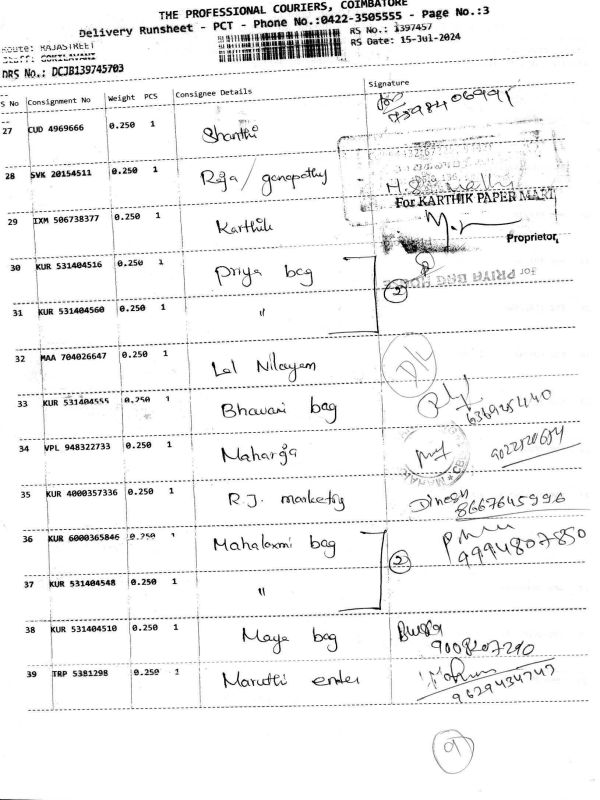 THE PROFESSIONAL COURIERS, COIMBATORE
Delivery Runsheet - PCT - Phone No.:0422-3505555 - Page No.:3
Route: RAJASTREET
RS No.: 1397457
Staff: GOKILAVANI
RS Date: 15-Jul-2024
DRS No.: DCJB139745703
S No Consignment No Weight PCS Consignee Details Signature
27 CUD 4969666 0.250 1 Shanthi
28 SVK 20154511 0.250 1 Raja / ganapathy
For KARTHIK PAPER MART
29 IXM 506738377 0.250 1 Karthik
Proprietor
30 KUR 531404516 0.250 1 Priya bag
For PRIYA BAG
2
31 KUR 531404560 0.250 1 "
32 MAA 704026647 0.250 1 Lal Nilayam D/L
33 KUR 531404555 0.250 1 Bhavani bag
34 VPL 948322733 0.250 1 Maharaja
35 KUR 4000357336 0.250 1 R.J. marketing Dinesh
8667645996
36 KUR 6000365846 0.250 1 Mahalaxmi bag
9994807850
2
37 KUR 531404548 0.250 1 "
38 KUR 531404510 0.250 1 Maya bag
9008207210
39 TRP 5381298 0.250 1 Maruthi enter
9629434747
9